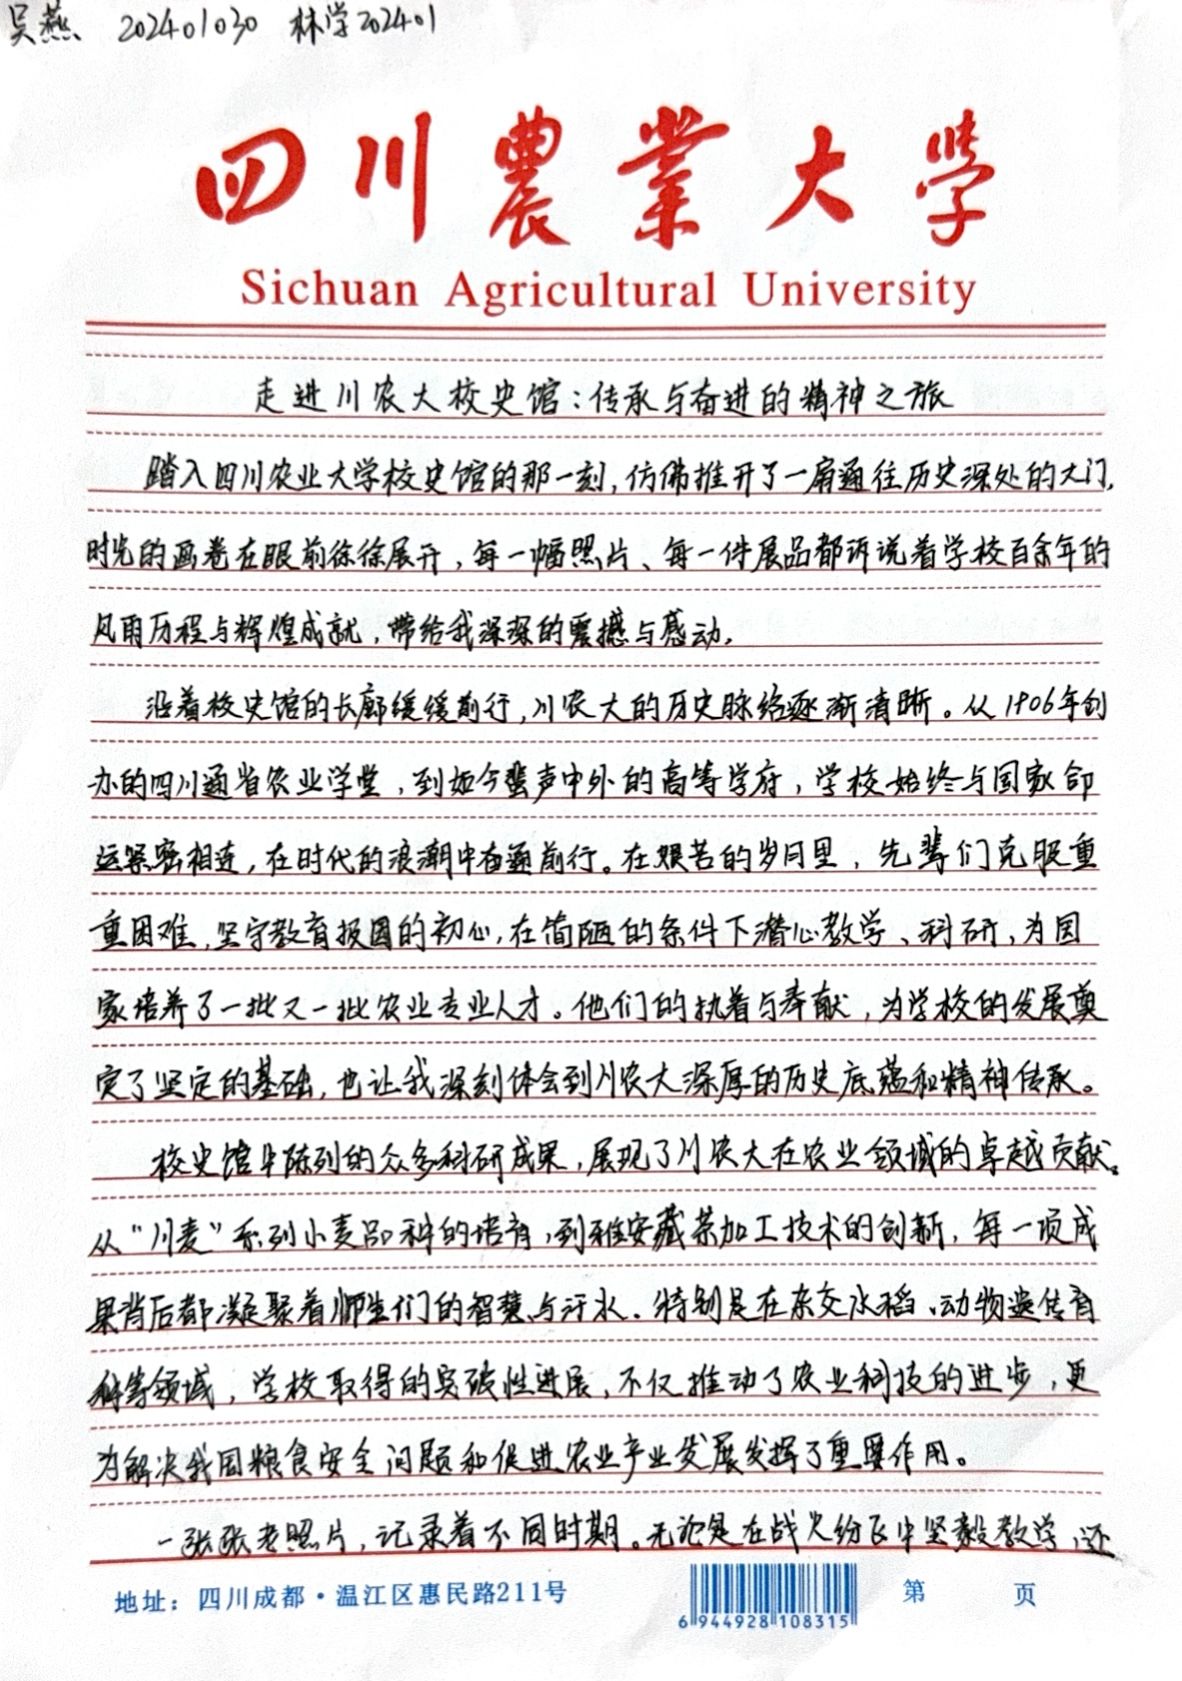 吴燕 202401030 林学202401
四川農業大學
Sichuan Agricultural University
走进川农大校史馆：传承与奋进的精神之旅
踏入四川农业大学校史馆的那一刻，仿佛推开了一扇通往历史深处的大门，
时光的画卷在眼前徐徐展开，每一幅照片、每一件展品都诉说着学校百余年的
风雨历程与辉煌成就，带给我深深的震撼与感动。
沿着校史馆的长廊缓缓前行，川农大的历史脉络逐渐清晰。从1906年创
办的四川通省农业学堂，到如今蜚声中外的高等学府，学校始终与国家命
运紧密相连，在时代的浪潮中奋勇前行。在艰苦的岁月里，先辈们克服重
重困难，坚守教育报国的初心，在简陋的条件下潜心教学、科研，为国
家培养了一批又一批农业专业人才。他们的执着与奉献，为学校的发展奠
定了坚定的基础，也让我深刻体会到川农大深厚的历史底蕴和精神传承。
校史馆中陈列的众多科研成果，展现了川农大在农业领域的卓越贡献。
从“川麦”系列小麦品种的培育，到雅安藏茶加工技术的创新，每一项成
果背后都凝聚着师生们的智慧与汗水。特别是在杂交水稻、动物遗传育
种等领域，学校取得的突破性进展，不仅推动了农业科技的进步，更
为解决我国粮食安全问题和促进农业产业发展发挥了重要作用。
一张张老照片，记录着不同时期。无论是在战火纷飞中坚毅教学，还
地址：四川成都·温江区惠民路211号
6 944928 108315
第 页